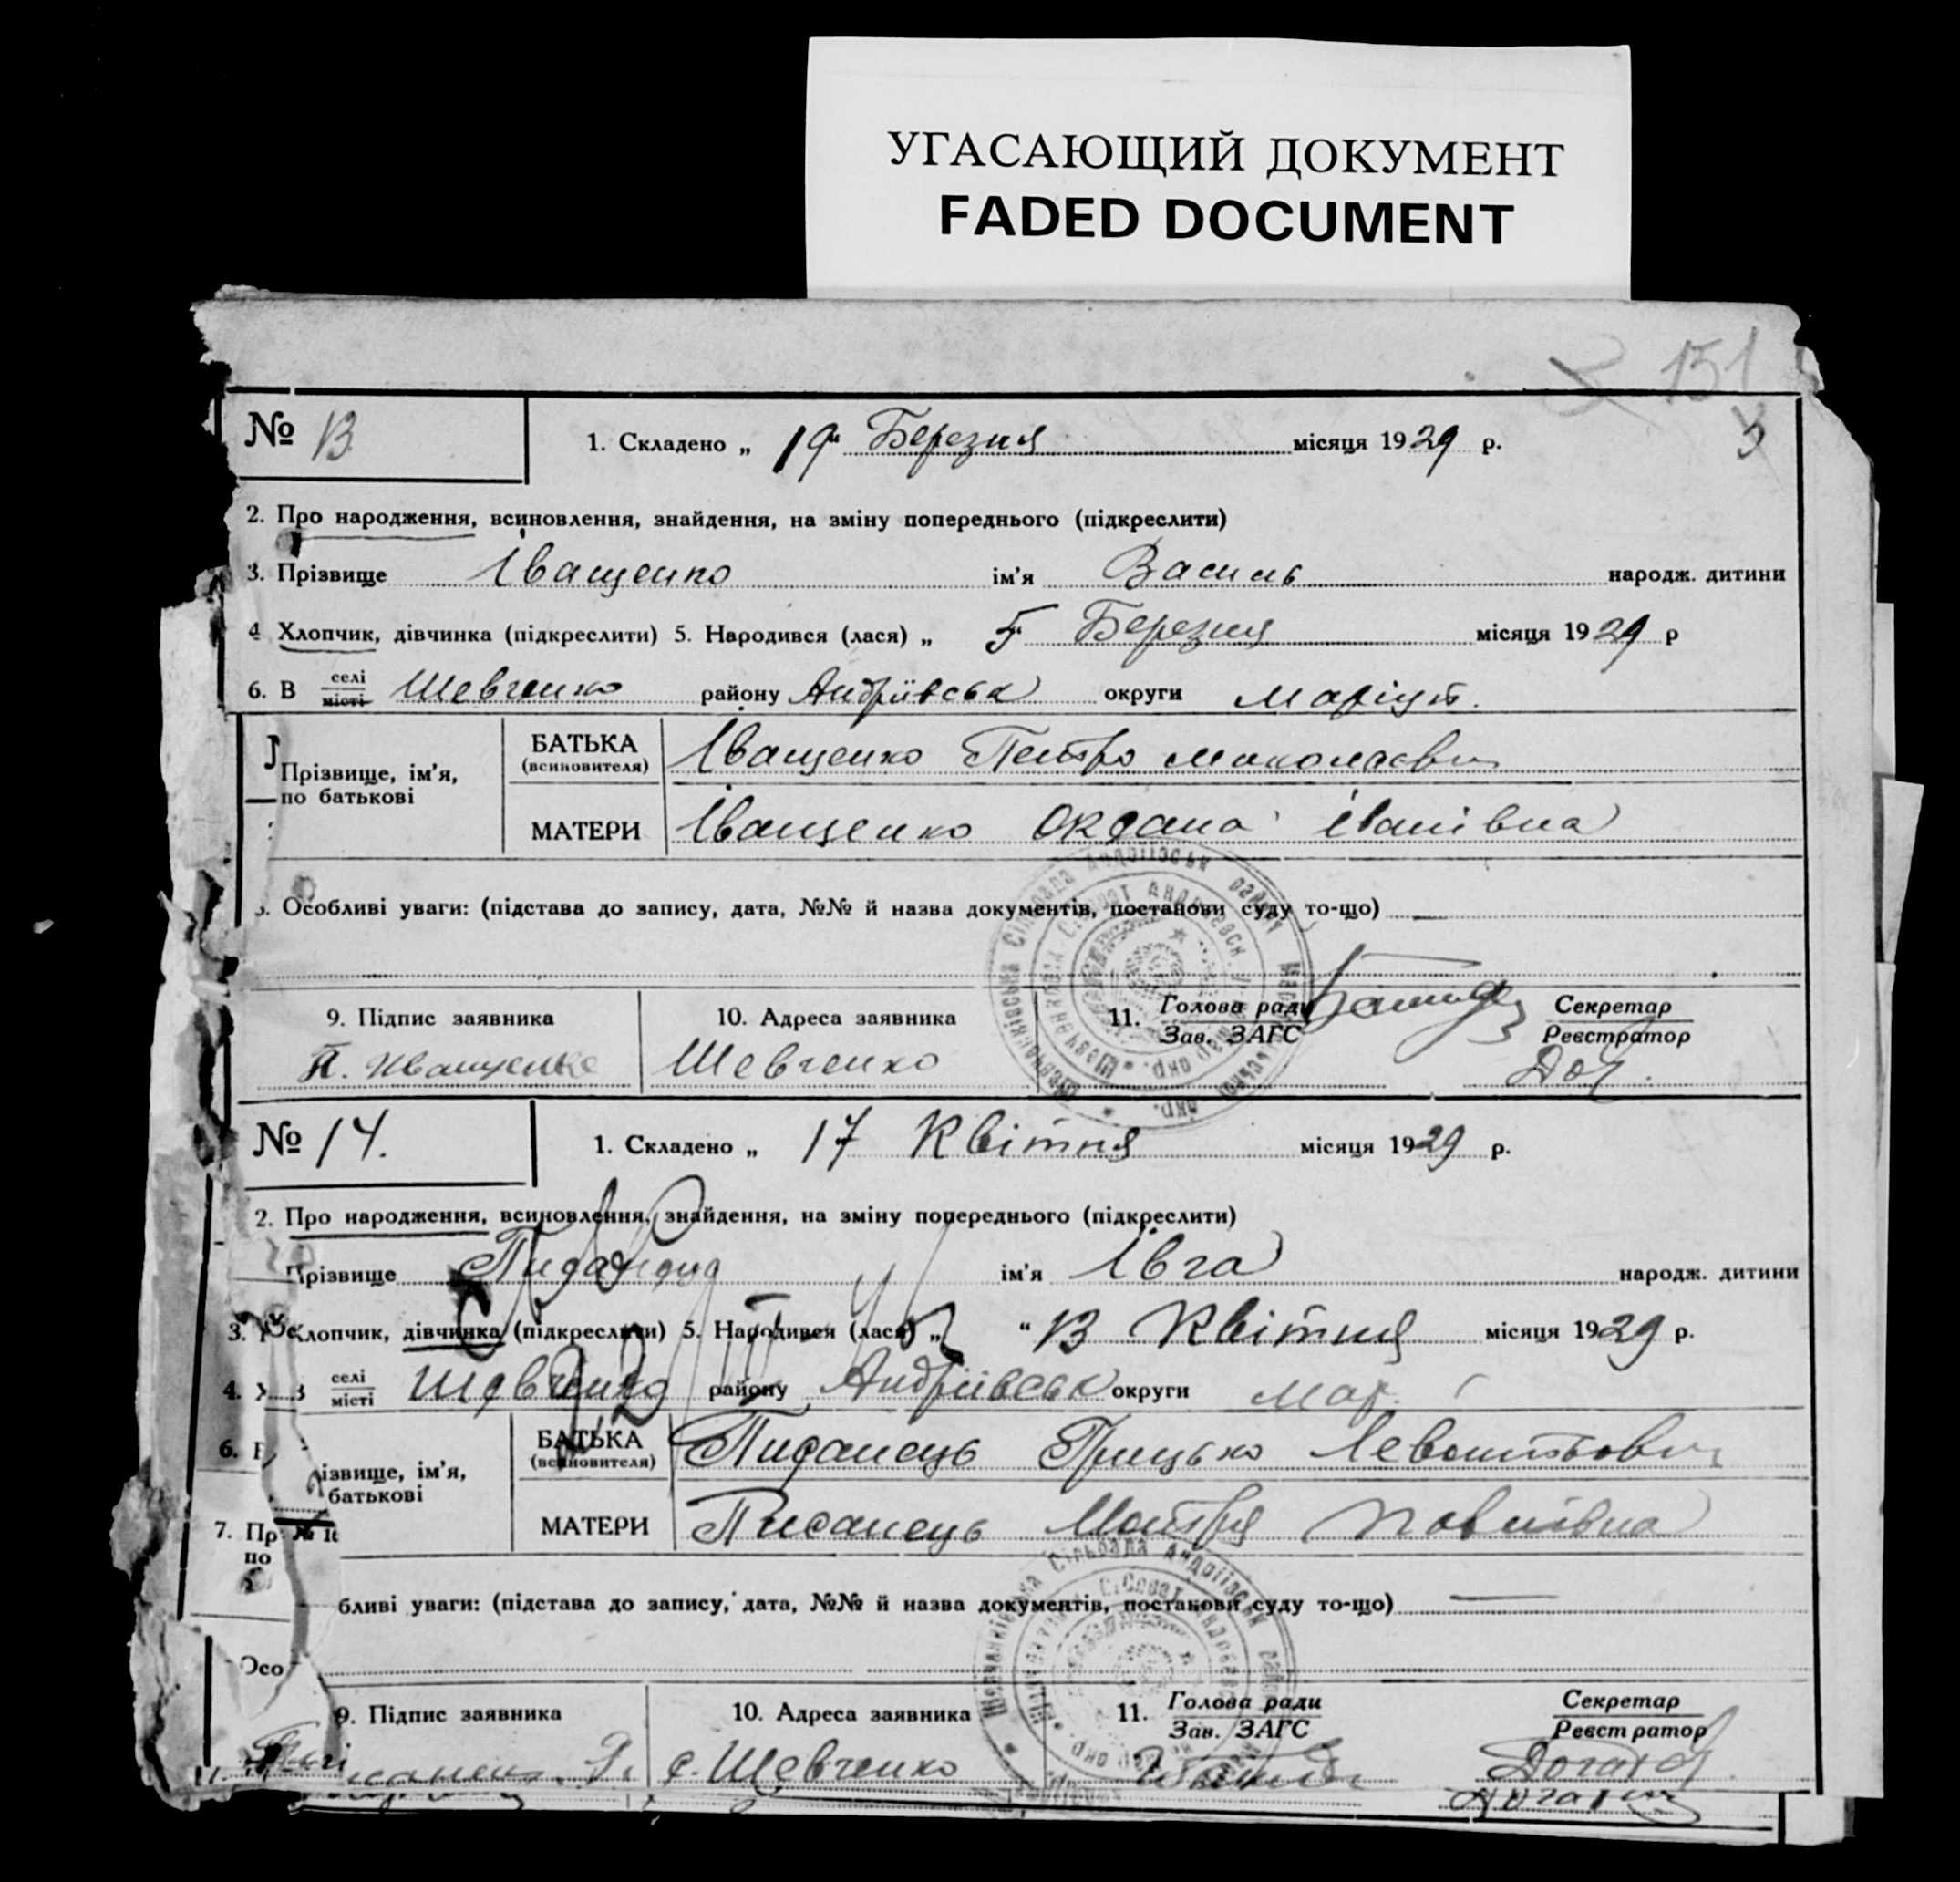 УГАСАЮЩИЙ ДОКУМЕНТ
FADED DOCUMENT
151
3
№ 13 1. Складено „ 19 " Березня місяця 1929 р.
2. Про народження, всиновлення, знайдення, на зміну попереднього (підкреслити)
3. Прізвище Іващенко ім'я Василь народж. дитини
4 Хлопчик, дівчинка (підкреслити) 5. Народився (лася) „ 5 " Березня місяця 1929 р
6. В селі місті Шевченко району Андріївськ округи Маріуп.
Прізвище, ім'я, по батькові
БАТЬКА (всиновителя) Іващенко Петро Миколаєвич
МАТЕРИ Іващенко Оксана Іванівна
Особливі уваги: (підстава до запису, дата, №№ й назва документів, постанови суду то-що) —
9. Підпис заявника 10. Адреса заявника 11. Голова ради Зав. ЗАГС Секретар Реєстратор
П. Иващенко Шевченко
№ 14. 1. Складено „ 17 Квітня місяця 1929 р.
2. Про народження, всиновлення, знайдення, на зміну попереднього (підкреслити)
Прізвище ім'я Івга народж. дитини
3. Хлопчик, дівчинка (підкреслити) 5. Народився (лася) „ " 13 Квітня місяця 1929 р.
4. селі місті Шевченко району Андріївськ округи Мар.
6.
ізвище, ім'я, батькові
БАТЬКА (всиновителя) Писанець Грицько
7. Пр по
МАТЕРИ Писанець Мотря Павлівна
бливі уваги: (підстава до запису, дата, №№ й назва документів, постанови суду то-що) —
Осо
9. Підпис заявника 10. Адреса заявника 11. Голова ради Зав. ЗАГС Секретар Реєстратор
с. Шевченко